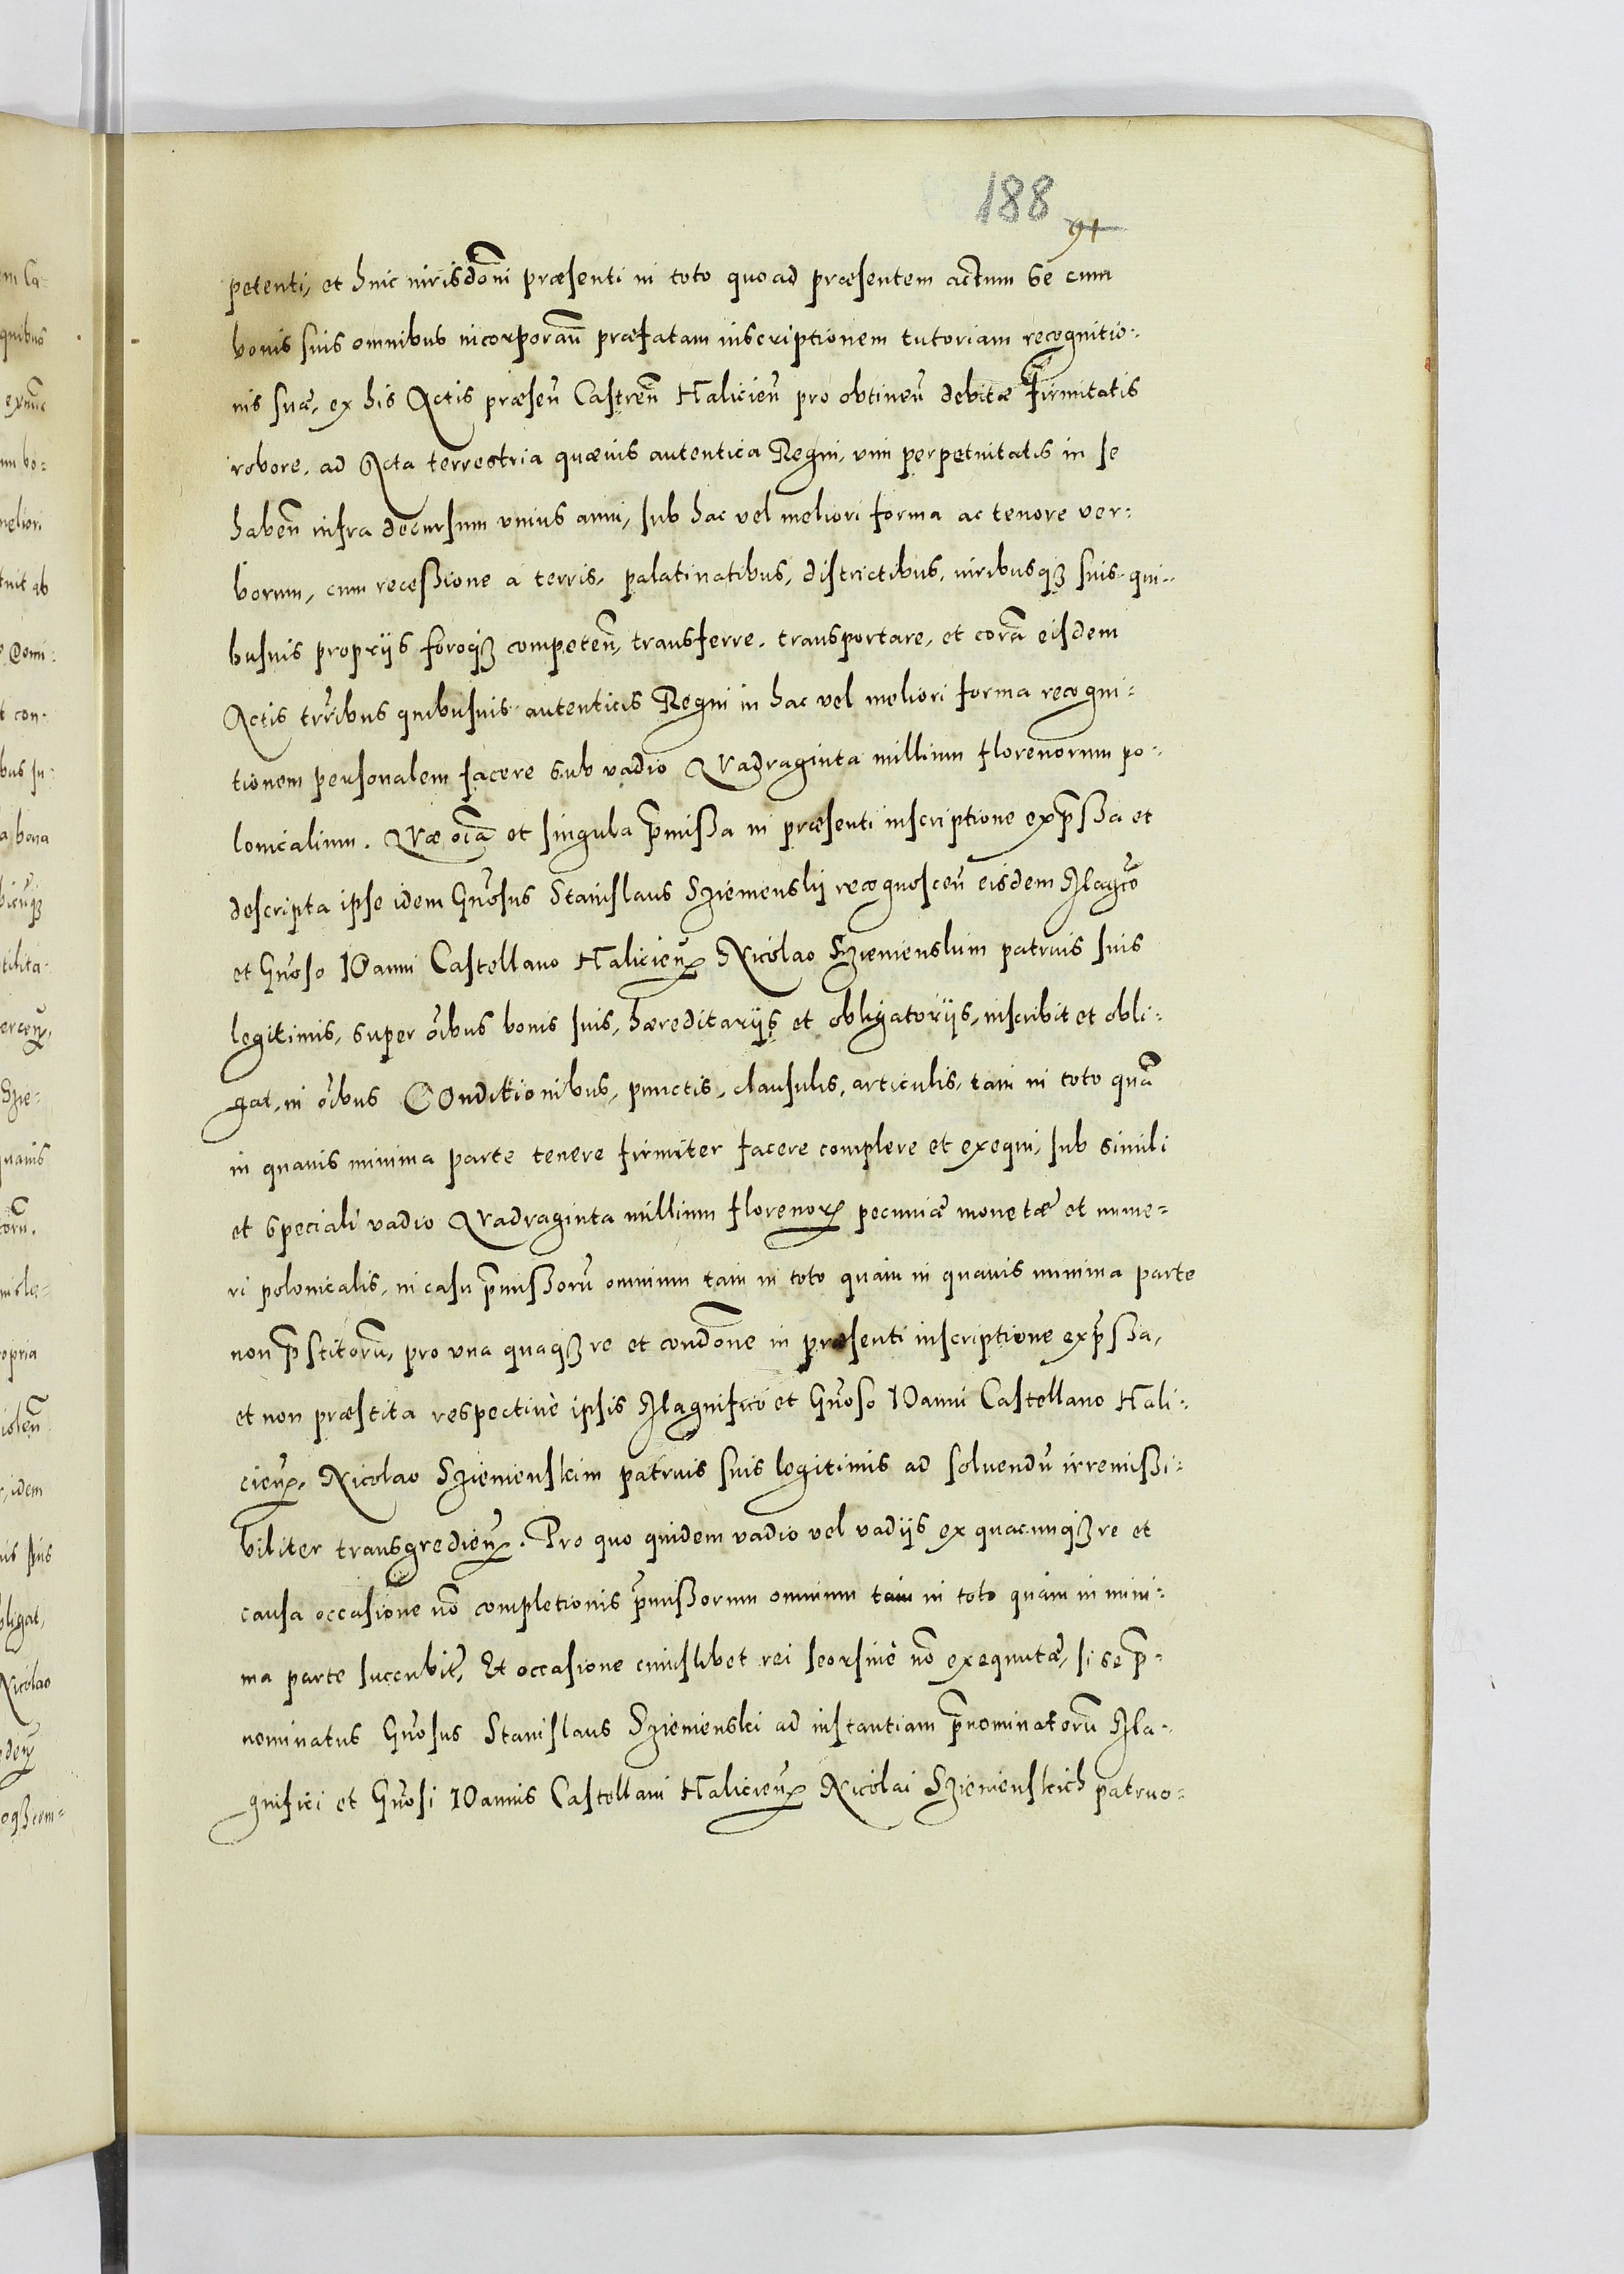 188
91
petenti, et huic iurisdōni præsenti in toto quoad præsentem actum se cum
bonis suis omnibus incorporan̄ præfatam inscriptionem tutoriam recognitio:
nis suæ, ex his Actis præsen̄ Castren̄ Halicien̄ pro obtinen̄ debitæ firmitatis
robore, ad Acta terrestria quævis autentica Regni, vim perpetuitatis in se
haben̄ infra decursum vnius anni, sub hac vel meliori forma ac tenore ver:
borum, cum recessione a terris, palatinatibus, districtibus, iuribusq3 suis qui:
busuis proprijs foroq3 competen̄, transferre, transportare, et corā eisdem
Actis trribus quibusuis autenticis Regni in hac vel meliori forma recogni:
tionem personalem facere sub vadio Quadraginta millium florenorum po:
lonicalium. Quæ oīa et singula p̄missa in præsenti inscriptione exp̄ssa et
descripta ipse idem Gn̄osus Stanislaus Szienienskij recognoscen̄ eisdem Magco
et Gn̄oso IOanni Castellano Halicien̄ Nicolao Szienienskim patruis suis
legitimis, super oībus bonis suis, hæreditarijs et obligatorijs, inscribit et obli:
gat, in oībus COnditionibus, punctis, clausulis, articulis, tam in toto quā
in quauis minima parte tenere firmiter facere complere et exequi, sub simili
et speciali vadio Quadraginta millium florenorꝝ pecuniæ monetæ et nume:
ri polonicalis, in casu p̄missorū omnium tam in toto quam in quauis minima parte
non p̄stitorū, pro vna quaq3 re et condōne in præsenti inscriptione exp̄ssa,
et non præstita respectiuè ipsis Magnifico et Gn̄oso IOanni Castellano Hali:
cien̄, Nicolao Szienienskim patruis suis legitimis ad soluendū irremissi:
biliter transgredien̄. Pro quo quidem vadio vel vadijs ex quacunq3 re et
causa occasione nō completionis p̄missorum omnium tam in toto quàm in mini:
ma parte sucubit̄, Et occasione cuiuslibet rei seorsiuè nō exequutæ, si se p̄:
nominatus Gn̄osus Stanislaus Szienienski ad instantiam p̄nominatorū Ma:
gnifici et Gn̄osi IOannis Castellani Halicien̄ Nicolai Szienienskich patruo: